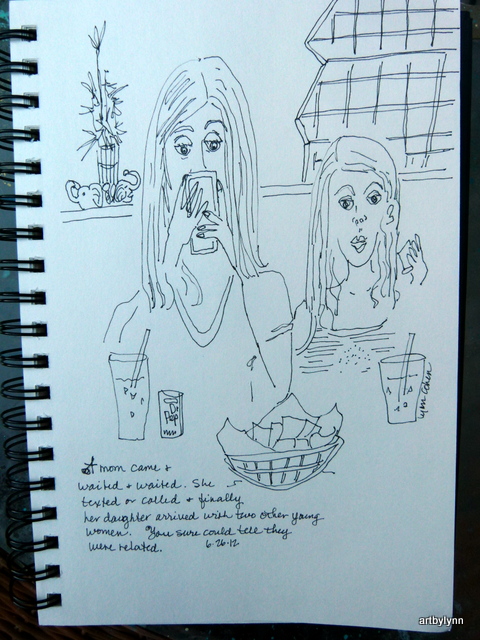 lynn cohen
A mom came &
waited & waited. She
texted or called & finally
her daughter arrived with two other young
women. You sure could tell they
were related. 6-26-12
artbylynn